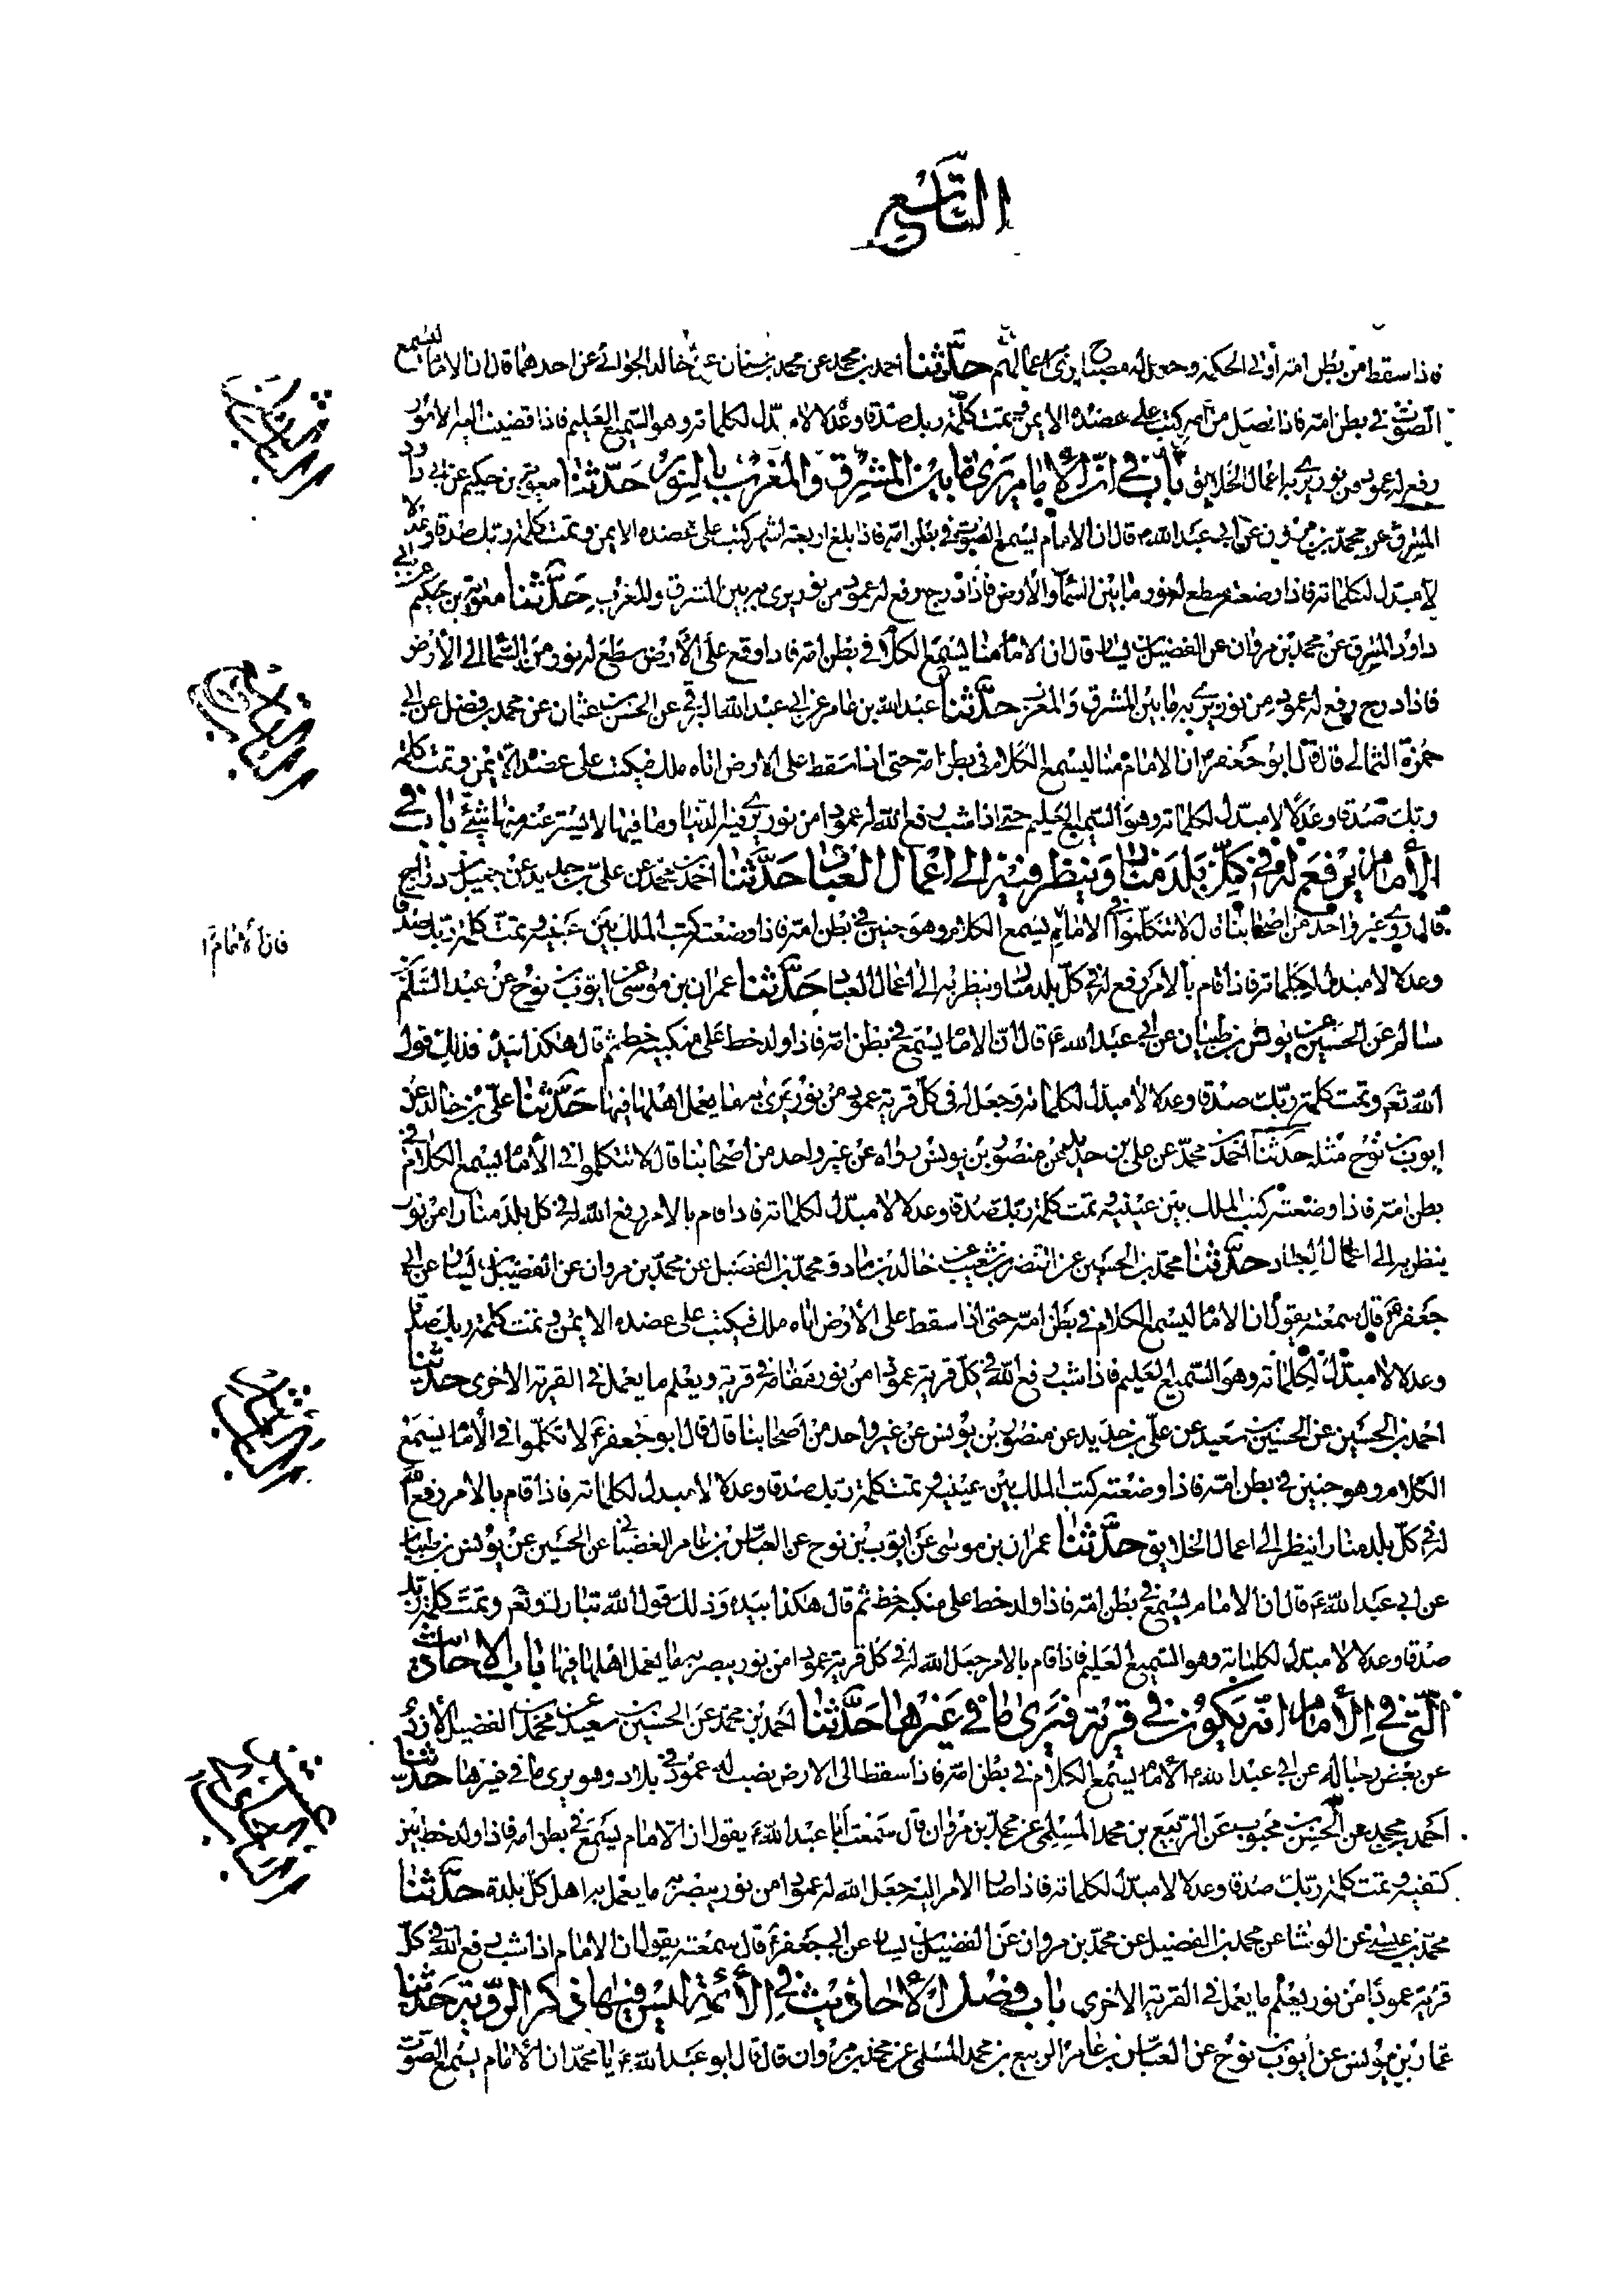 التاسع
فاذا سقط من بطن امه اوتى الحكمة وجعل له مصباح يرى اعمالهم حدثنا احمد بن محمد عن محمد بن سنان عن خالد الجوانى عن احدهما قال ان الامام ليسمع
الصوت فى بطن امه فاذا فصل من امه كتب على عضده الايمن وتمت كلمة ربك صدقا وعدلا لا مبدل لكلماته وهو السميع العليم فاذا قضيت اليه الامور
رفع له عمود من نور يرى به اعمال الخلايق باب فى ان الامام يرى ما بين المشرق والمغرب بالنور حدثنا معوية بن حكيم عن ابى داود
المشرق عن محمد بن مروان عن ابى عبد الله ع قال ان الامام يسمع الصوت فى بطن امه فاذا بلغ اربعة اشهر كتب على عضده الايمن وتمت كلمة ربك صدقا وعدلا
لا مبدل لكلماته فاذا وضعته سطع له نور ما بين السماء والارض فاذا درج رفع له عمود من نور يرى به بين المشرق والمغرب حدثنا معوية بن حكيم عن ابى
داود المشرق عن محمد بن مروان عن الفضيل بن يسار قال ان الامام منا يسمع الكلام فى بطن امه فاذا وقع على الارض سطع له نور من السماء الى الارض
فاذا درج رفع له عمود من نور يرى به ما بين المشرق والمغرب حدثنا عبد الله بن عامر عن ابى عبد الله البرقى عن الحسن بن عثمان عن محمد بن فضيل عن ابى
حمزة الثمالى قال قال ابو جعفر ع ان الامام منا ليسمع الكلام فى بطن امه حتى اذا سقط على الارض اتاه ملك فيكتب على عضده الايمن وتمت كلمة
ربك صدقا وعدلا لا مبدل لكلماته وهو السميع العليم حتى اذا شب رفع الله له عمودا من نور يرى فيه الدنيا وما فيها لا يستر عنه منها شئ باب فى
الامام يرفع له فى كل بلد منار وينظر فيه الى اعمال العباد حدثنا احمد بن محمد عن على بن حديد عن جميل بن دراج
قال روى غير واحد من اصحابنا قال لا تتكلموا فى الامام يسمع الكلام وهو جنين فى بطن امه فاذا وضعته كتب الملك بين عينيه وتمت كلمة ربك صدقا
فان الامام
وعدلا لا مبدل لكلماته فاذا قام بالامر رفع له فى كل بلد منار وينظر به الى اعمال العباد حدثنا عمران بن موسى عن ايوب بن نوح عن عبد السلم بن
سالم عن الحسين عن يونس بن ظبيان عن ابى عبد الله ع قال ان الامام يسمع فى بطن امه فاذا ولد خط على منكبيه خط ثم قال هكذا بيده فذلك قول
الله تع وتمت كلمة ربك صدقا وعدلا لا مبدل لكلماته وجعل له فى كل قرية عمود من نور يرى به ما يعمل اهلها فيها حدثنا على بن خالد عن
ايوب بن نوح مثله حدثنا احمد بن محمد عن على بن حديد عن منصور بن يونس رواه عن غير واحد من اصحابنا قال لا تتكلموا فى الامام يسمع الكلام فى
بطن امه فاذا وضعته كتب الملك بين عينيه وتمت كلمة ربك صدقا وعدلا لا مبدل لكلماته فاذا قام بالامر رفع الله له فى كل بلد منارا من نور
ينظر به الى اعمال العباد حدثنا محمد بن الحسين عن النضر بن شعيب عن خالد بن ماد ومحمد بن الفضيل عن محمد بن مروان عن الفضيل بن يسار عن ابى
جعفر ع قال سمعته يقول ان الامام ليسمع الكلام فى بطن امه حتى اذا سقط على الارض اتاه ملك فيكتب على عضده الايمن وتمت كلمة ربك صدقا
وعدلا لا مبدل لكلماته وهو السميع العليم فاذا شب رفع الله فى كل قرية عمودا من نور مقامه فى قرية ويعلم ما يعمل فى القرية الاخرى حدثنا
احمد بن الحسين عن الحسين بن سعيد عن على بن حديد عن منصور بن يونس عن غير واحد من اصحابنا قال قال ابو جعفر ع لا تكلموا فى الامام يسمع
الكلام وهو جنين فى بطن امه فاذا وضعته كتب الملك بين عينيه وتمت كلمة ربك صدقا وعدلا لا مبدل لكلماته فاذا قام بالامر رفع الله
له فى كل بلد منارا ينظر الى اعمال الخلايق حدثنا عمران بن موسى عن ايوب بن نوح عن العباس بن عامر القضبانى عن الحسين عن يونس بن ظبيان
عن ابى عبد الله ع قال ان الامام يسمع فى بطن امه فاذا ولد خط على منكبه خط ثم قال هكذا بيده وذلك قول الله تبارك وتع وتمت كلمة ربك
صدقا وعدلا لا مبدل لكلماته وهو السميع العليم فاذا قام بالامر جعل الله له فى كل قرية عمودا من نور يبصر به ما يعمل اهلها فيها باب الاحاديث
التى فى الامام انه يكون فى قرية فيرى ما فى غيرها حدثنا احمد بن محمد عن الحسين بن سعيد عن محمد بن الفضيل الازدى
عن بعض رجاله عن ابى عبد الله ع الامام يسمع الكلام فى بطن امه فاذا سقط الى الارض نصب له عمود فى بلاده وهو يرى ما فى غيرها حدثنا
احمد بن محمد عن الحسن بن محبوب عن الربيع بن محمد المسلمى عن محمد بن مروان قال سمعت ابا عبد الله ع يقول ان الامام يسمع فى بطن امه فاذا ولد خط بين
كتفيه وتمت كلمة ربك صدقا وعدلا لا مبدل لكلماته فاذا صار الامر اليه جعل الله له عمودا من نور يبصر به ما يعمل به اهل كل بلدة حدثنا
محمد بن عيسى عن الوشا عن محمد بن الفضيل عن محمد بن مروان عن الفضيل بن يسار عن ابى جعفر ع قال سمعته يقول ان الامام اذا شب رفع الله فى كل
قرية عمودا من نور يعلم ما يعمل فى القرية الاخرى باب فضل الاحاديث فى الائمة ليس فيها ذكر الروية حدثنا
عمار بن يونس عن ايوب بن نوح عن العباس بن عامر الربيع بن محمد المسلمى عن محمد بن مروان قال قال ابو عبد الله ع يا محمد ان الامام يسمع الصوت